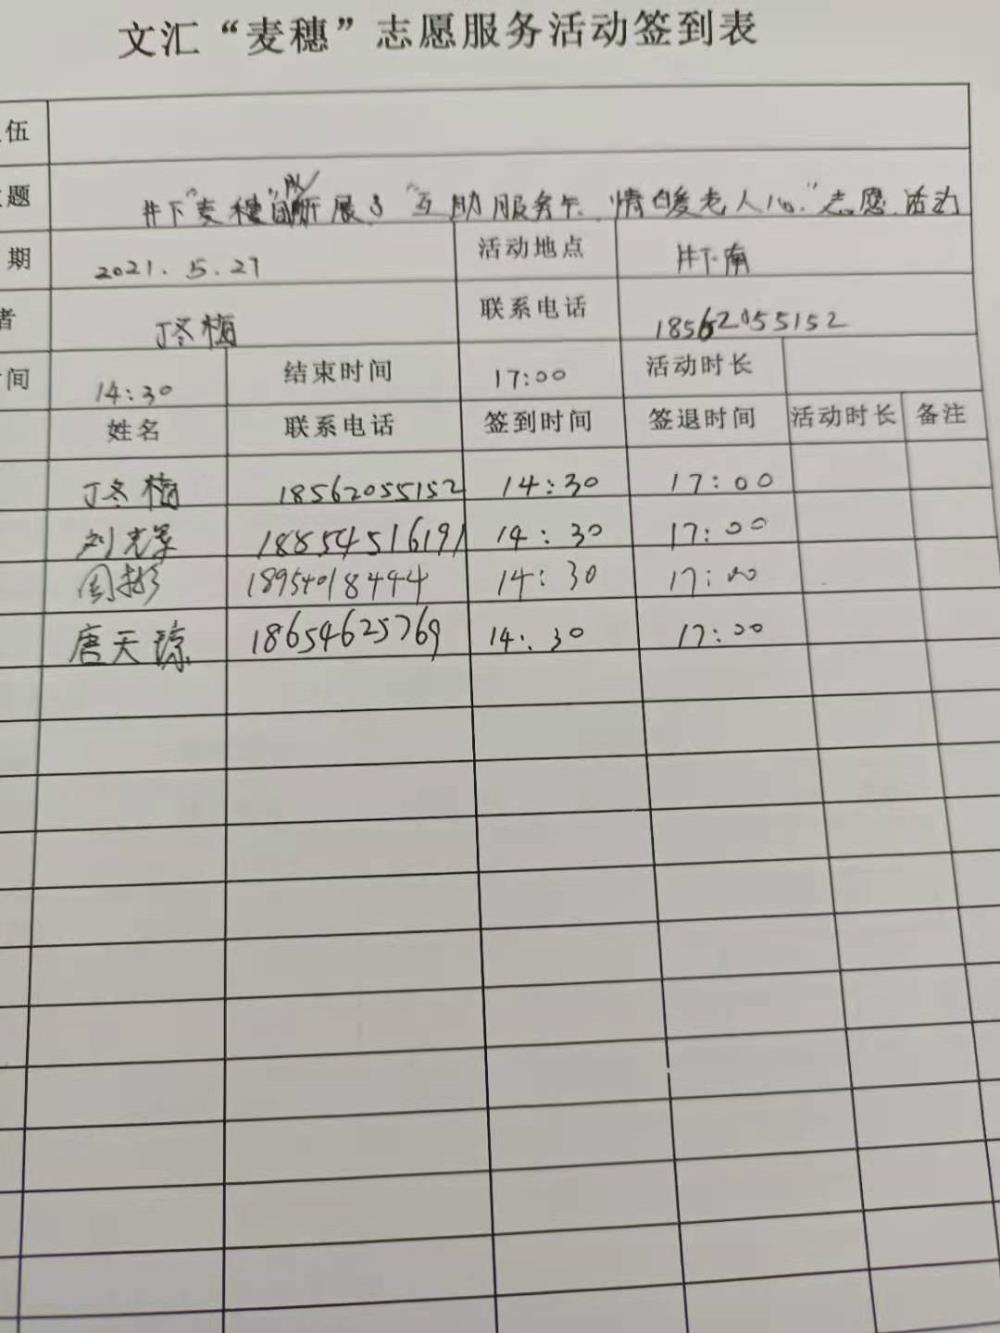 文汇“麦穗”志愿服务活动签到表
伍
题 井下“麦穗”队开展了“互助服务 情暖老人心”志愿活动
期 2021.5.27 活动地点 井下南
者 丁冬梅 联系电话 18562055152
间 14:30 结束时间 17:00 活动时长
姓名 联系电话 签到时间 签退时间 活动时长 备注
丁冬梅 18562055152 14:30 17:00
刘 18854516191 14:30 17:00
周彬 18954018444 14:30 17:00
唐天琼 18654625769 14:30 17:00